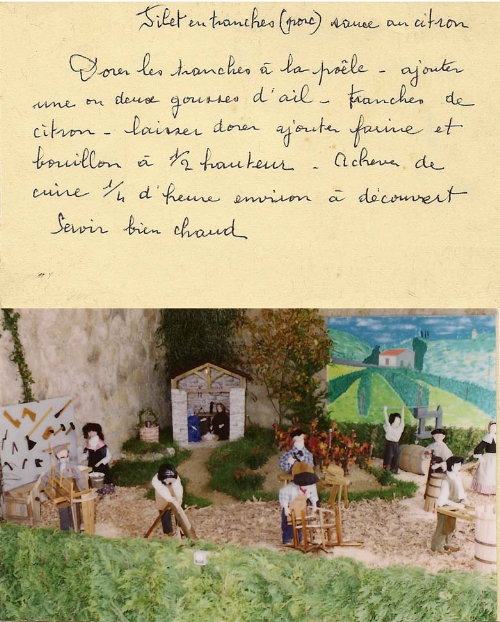 Filet en tranches (porc) sauce au citron
Dorer les tranches à la poêle - ajouter
une ou deux gousses d'ail - tranches de
citron - laisser dorer ajouter farine et
bouillon à 1/2 hauteur. Achever de
cuire 1/4 d'heure environ à découvert
Servir bien chaud